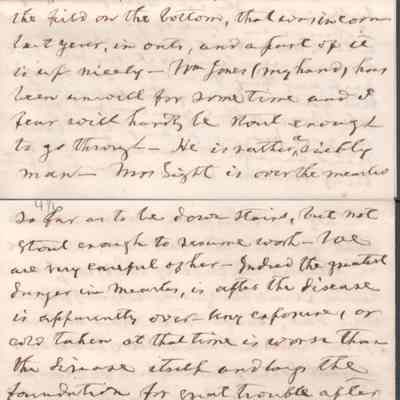 the field on the bottom, that was in corn
last year, in oats, and a part of it
is up nicely - Wm Jones (my hand) has
been unwell for some time and I
fear will hardly be stout enough
to go through - He is rather a sickly
man - Mrs Light is over the measles
so far as to be down stairs, but not
stout enough to resume work - We
are very careful of her - Indeed the greatest
danger in measles, is after the disease
is apparently over - Any exposure, or
cold taken at that time is worse than
the disease itself and lays the
foundation for great trouble after